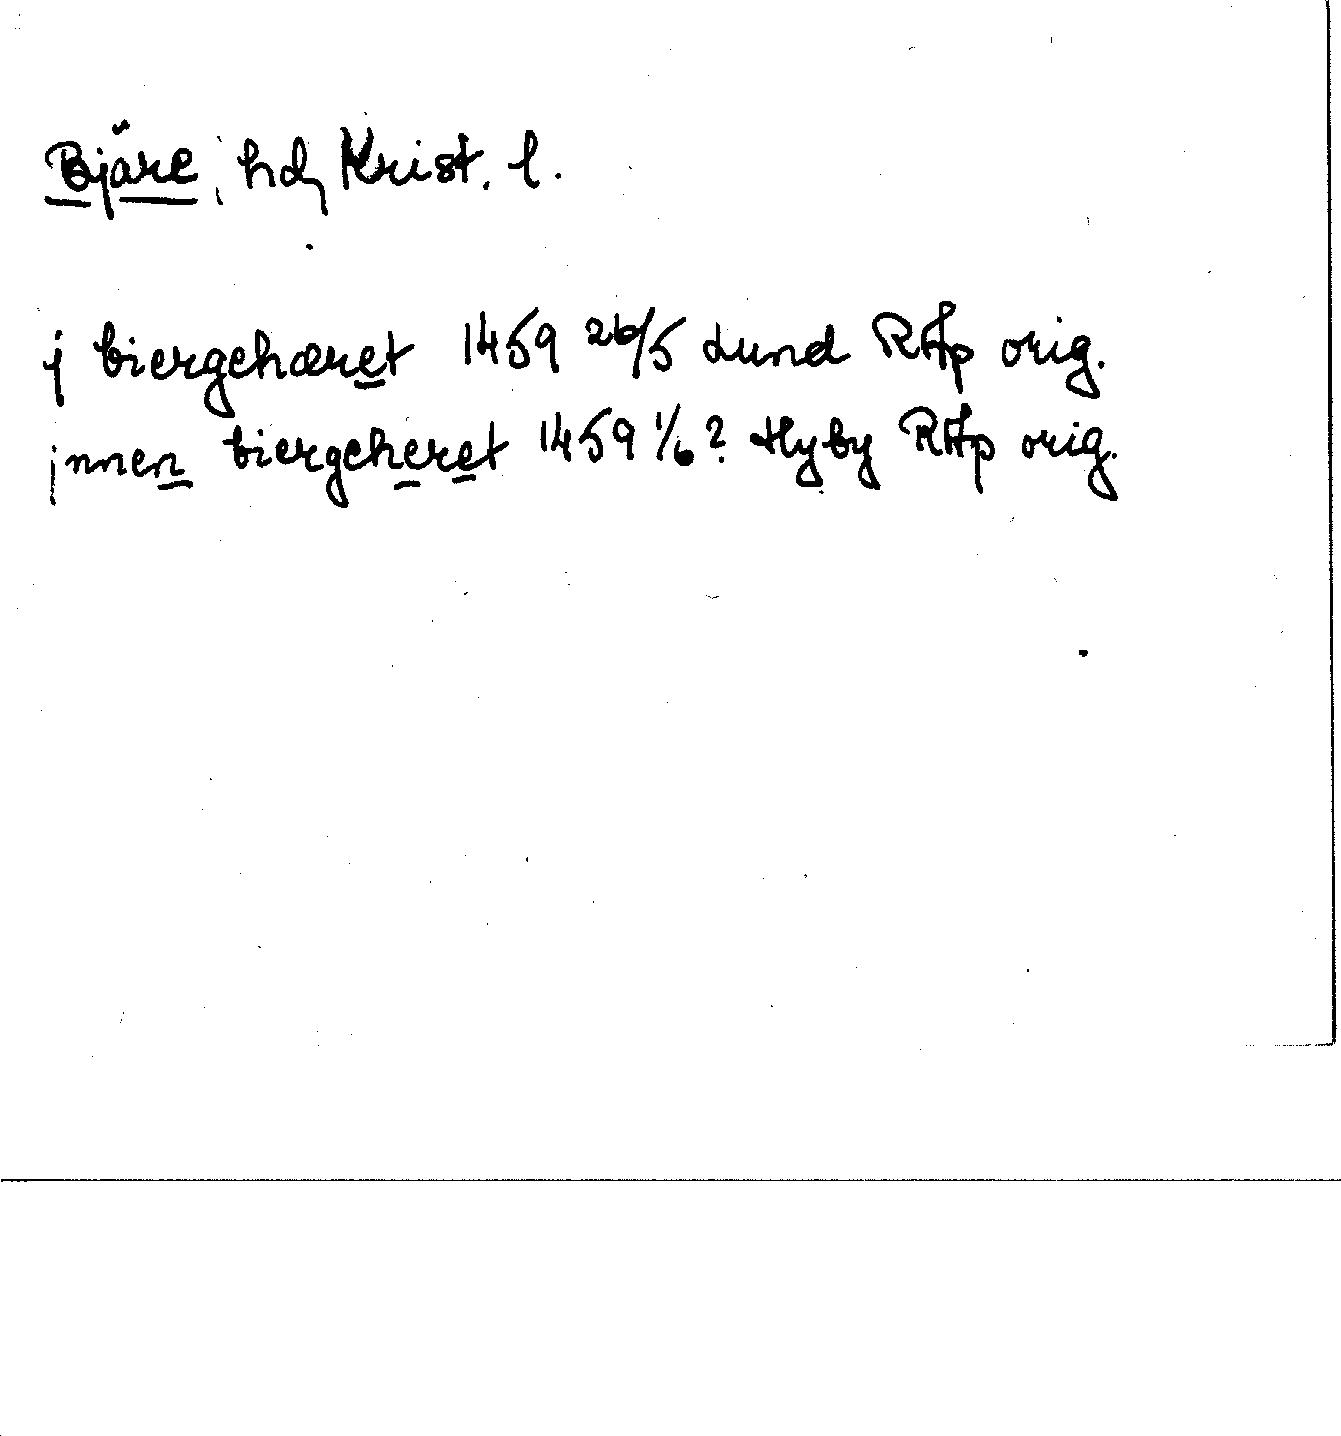 Bjäre, hd, Krist. l.
j biergehæret 1459 26/5 Lund RAp orig.
jnnen biergeheret 1459 1/6? Hyby RAp orig.